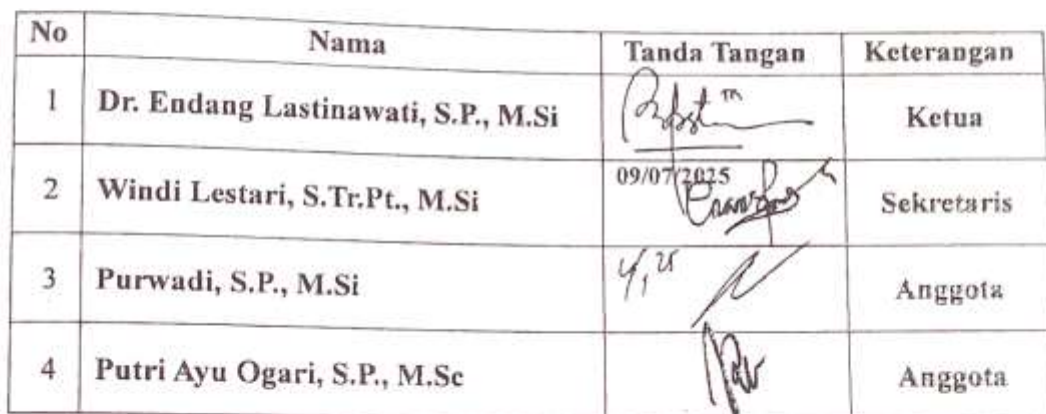 No Nama Tanda Tangan Keterangan
1 Dr. Endang Lastinawati, S.P., M.Si Ketua
2 Windi Lestari, S.Tr.Pt., M.Si 09/07/2025 Sekretaris
3 Purwadi, S.P., M.Si Anggota
4 Putri Ayu Ogari, S.P., M.Sc Anggota